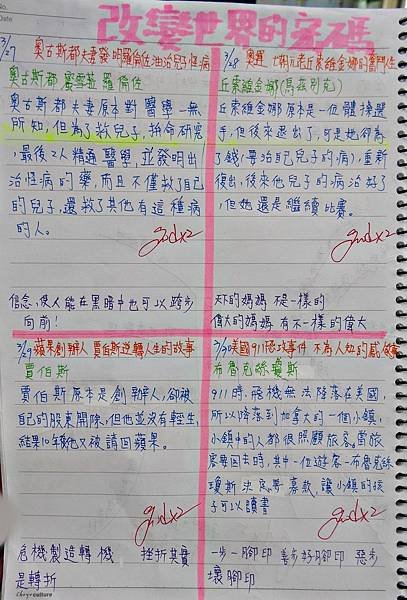 改變世界的密碼
3/27 奧古斯都夫妻發明羅倫佐油治兒怪病
奧古斯都 蜜雪菈 羅倫佐
奧古斯都夫妻原本對醫學一無
所知,但為了救兒子,拚命研究
,最後2人精通醫學並發明出
治怪病的藥,而且不僅救了自己
的兒子,還救了其他有這種病
的人。
godx2
信念,使人能在黑暗中也可以跨步
向前!
3/28 奧運 七朝元老丘索維金娜的奮鬥佐
丘索維金娜(烏茲別克)
丘索維金娜原本是一位體操選
手,但後來退出了,可是她卻為
了錢(要治自己兒子的病),重新
復出,後來他兒子的病治好了
,但她還是繼續比賽。
godx2
天下的媽媽不是一樣的
偉大的媽媽 有不一樣的偉大
3/29 蘋果創辦人 賈伯斯逆轉人生的故事
賈伯斯
賈伯斯原本是創辦人,卻被
自己的股東開除,但他並沒有輕生,
結果10年後他又被請回蘋果。
godx2
危機製造轉機 挫折其實
是轉折
3/30 美國911恐攻事件 不為人知的感人故事
布魯克絲 瓊斯
911時,飛機無法降落在美國,
所以降落到加拿大的一個小鎮,
小鎮中的人都很照顧旅客。當旅
客要回去時,其中一位遊客-布魯克絲
瓊斯決定要募款,讓小鎮的孩
子可以讀書
godx2
一步一腳印 善步好腳印 惡步
壞腳印
Chuyu culture